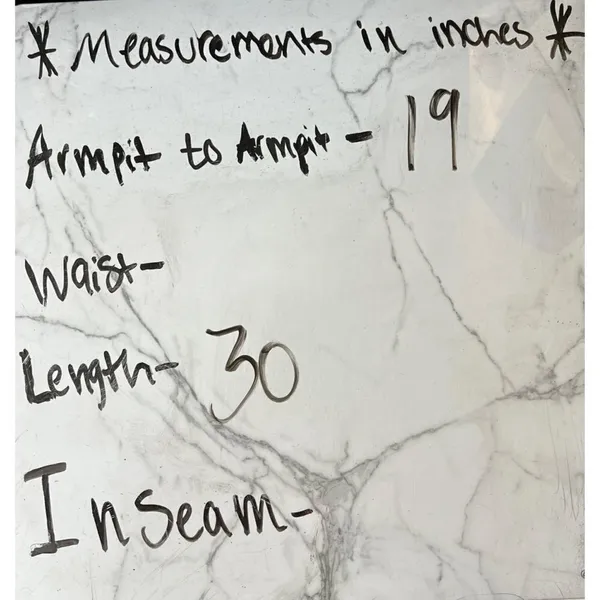 * Measurements in inches *
Armpit to Armpit - 19
Waist-
Length- 30
Inseam-